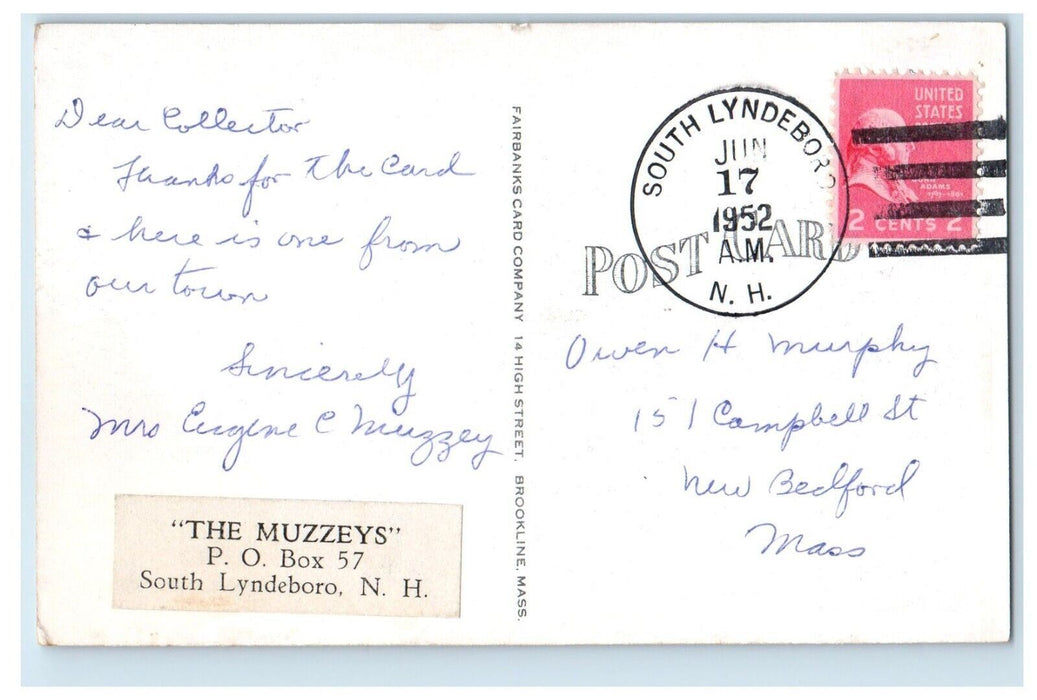 Dear Collector
Thanks for the Card
& here is one from
our town
Sincerely
Mrs Eugene C Muzzey
"THE MUZZEYS"
P. O. Box 57
South Lyndeboro, N. H.
FAIRBANKS CARD COMPANY 14 HIGH STREET. BROOKLINE, MASS.
SOUTH LYNDEBORO
JUN
17
1952
A.M.
N. H.
UNITED
STATES
ADAMS
2 CENTS 2
POST CARD
Owen H Murphy
151 Campbell St
New Bedford
Mass